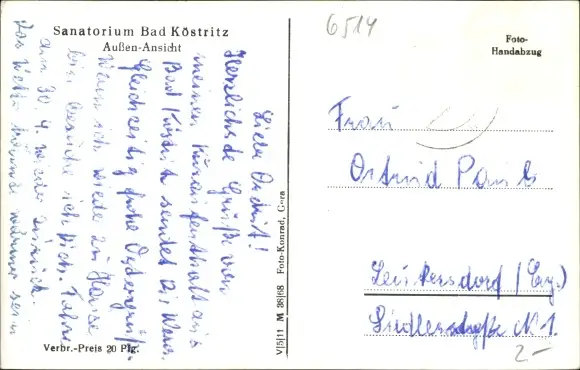 Sanatorium Bad Köstritz
Außen-Ansicht
Liebe
Herzlichste Grüße von
meinem Kuraufenthalt aus
Bad Köstritz sendet Dir, Werner.
Gleichzeitig frohe Ostergrüße.
Wenn ich wieder zu Hause
bin besuche ich Dich. Fahre
am 30. 4. wieder zurück.
Das Wetter wärmer sein
Verbr.-Preis 20 Pfg.
V|5|11 M 38|68 Foto-Konrad, Gera
6514
Foto-
Handabzug
Frau
(Erzg.)
Siedlerstraße N 1.
2-